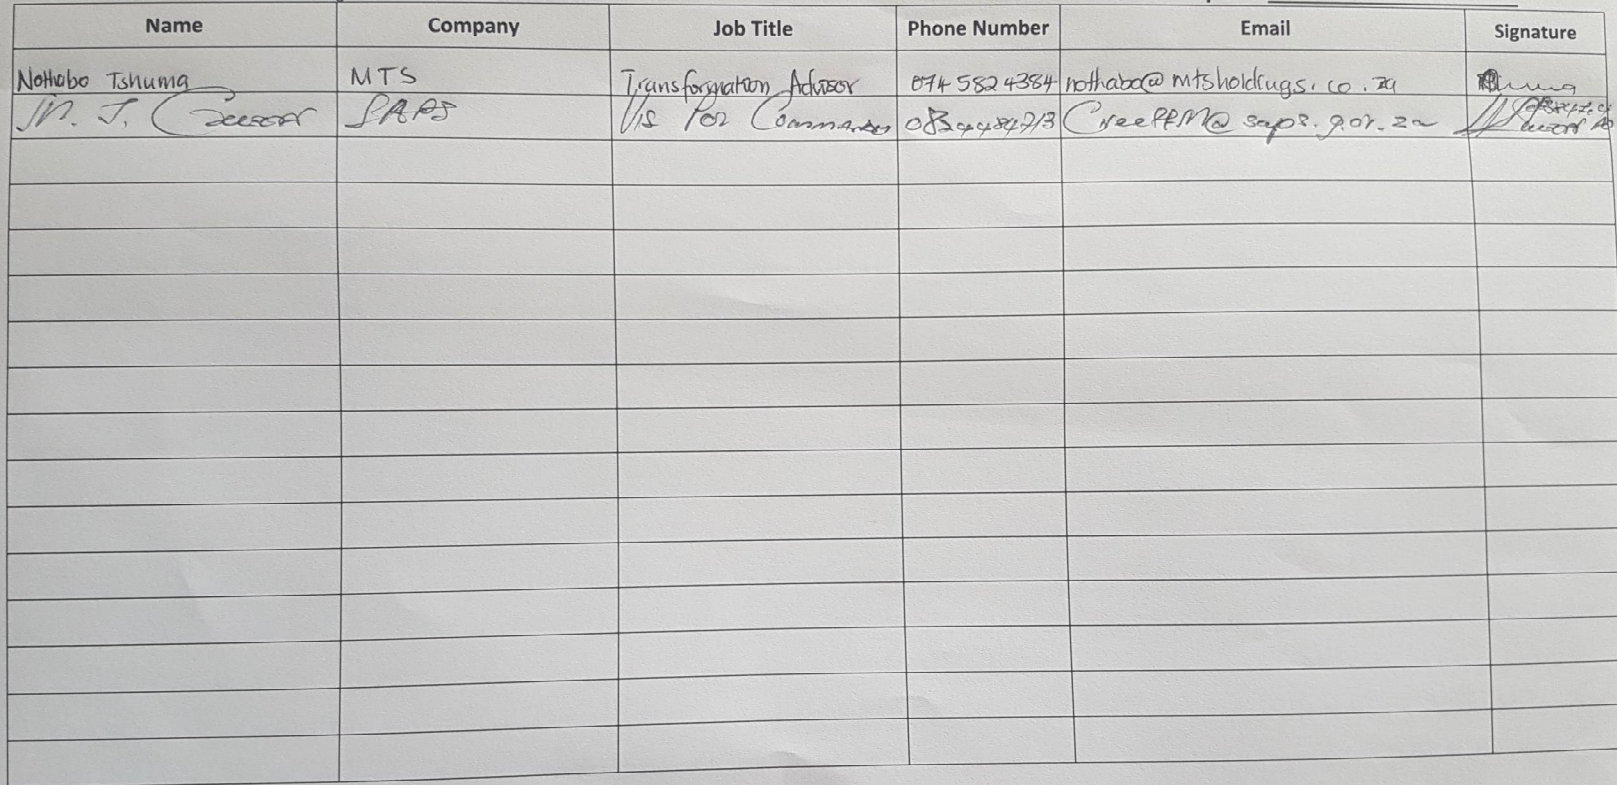 Name Company Job Title Phone Number Email Signature
Nothabo Tshuma MTS Transformation Advisor 074 582 4384 nothabo@mtsholdings.co.za
M. J. SAPS Vis Pol Commander saps.gov.za